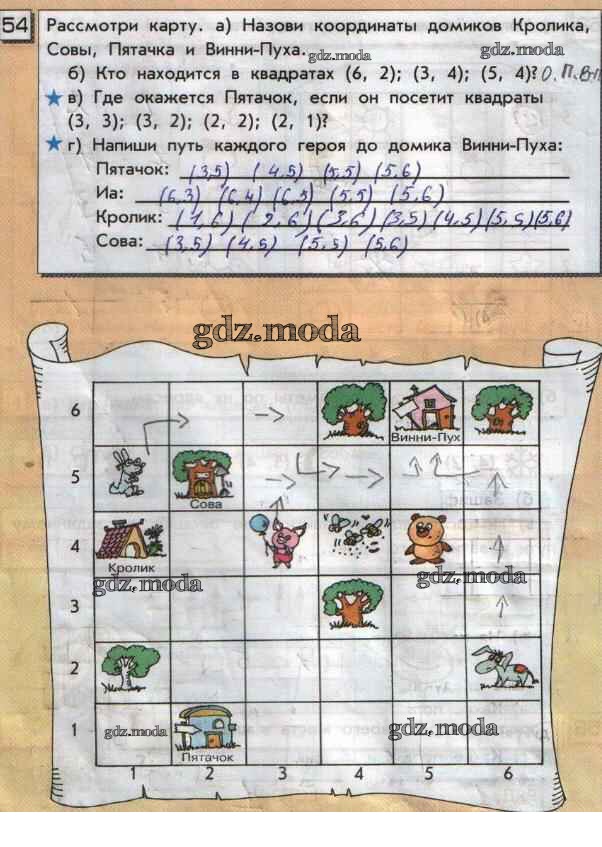 54 Рассмотри карту. а) Назови координаты домиков Кролика,
Совы, Пятачка и Винни-Пуха. gdz.moda gdz.moda
б) Кто находится в квадратах (6, 2); (3, 4); (5, 4)? О. П. В-П
★ в) Где окажется Пятачок, если он посетит квадраты
(3, 3); (3, 2); (2, 2); (2, 1)?
★ г) Напиши путь каждого героя до домика Винни-Пуха:
Пятачок: (3,5) (4,5) (5,5) (5,6)
Иа: (6,3) (6,4) (6,5) (5,5) (5,6) gdz.moda
Кролик: (1,6) (2,6) (3,6) (3,5) (4,5) (5,5) (5,6)
Сова: (3,5) (4,5) (5,5) (5,6)
gdz.moda
6
Винни-Пух
5
Сова
4
Кролик
gdz.moda gdz.moda
3
2
1
gdz.moda gdz.moda
Пятачок
1 2 3 4 5 6